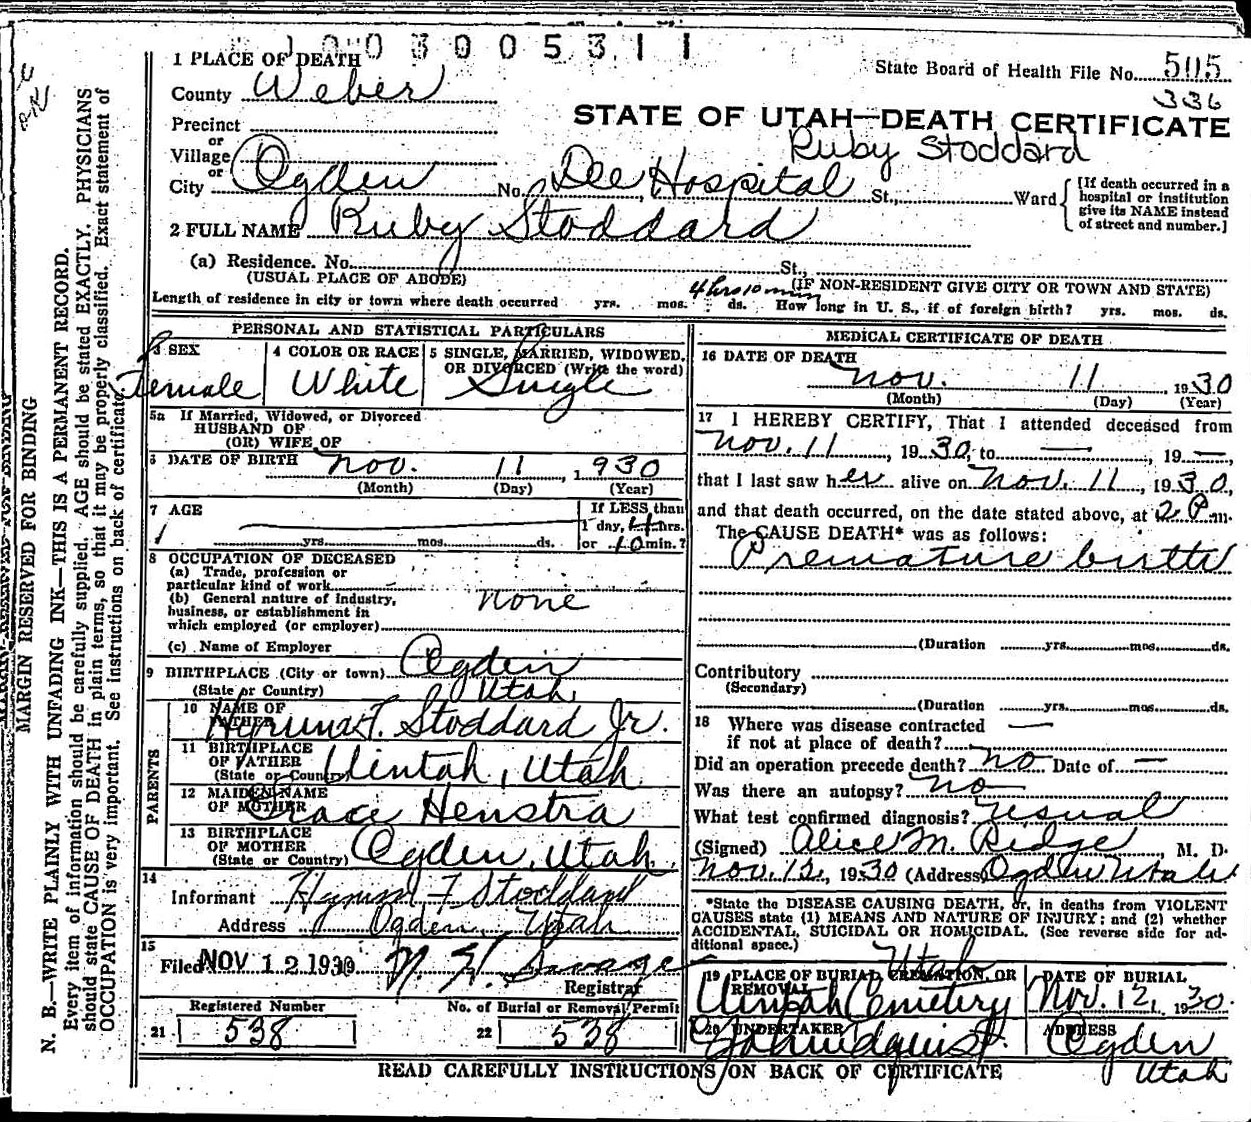 0 0 0 3 0 0 5 3 1 1
1 PLACE OF DEATH
State Board of Health File No. 505
336
County Weber
STATE OF UTAH—DEATH CERTIFICATE
Ruby Stoddard
Precinct
or
Village
or
City Ogden No. Dee Hospital St., Ward
[If death occurred in a
hospital or institution
give its NAME instead
of street and number.]
2 FULL NAME Ruby Stoddard
(a) Residence. No. St.,
(USUAL PLACE OF ABODE)
(IF NON-RESIDENT GIVE CITY OR TOWN AND STATE)
Length of residence in city or town where death occurred yrs. mos. 4 hrs 10 min ds. How long in U. S., if of foreign birth? yrs. mos. ds.
PERSONAL AND STATISTICAL PARTICULARS
3 SEX
Female
4 COLOR OR RACE
White
5 SINGLE, MARRIED, WIDOWED,
OR DIVORCED (Write the word)
Single
5a If Married, Widowed, or Divorced
HUSBAND OF
(OR) WIFE OF
6 DATE OF BIRTH Nov. 11, 1930
(Month) (Day) (Year)
7 AGE
yrs. mos. ds.
If LESS than
1 day, 4 hrs.
or 10 min.?
8 OCCUPATION OF DECEASED
(a) Trade, profession or
particular kind of work
(b) General nature of industry,
business, or establishment in
which employed (or employer) none
(c) Name of Employer
9 BIRTHPLACE (City or town) Ogden
(State or Country) Utah
PARENTS
10 NAME OF
FATHER Hyrum T. Stoddard Jr.
11 BIRTHPLACE
OF FATHER
(State or Country) Uintah, Utah
12 MAIDEN NAME
OF MOTHER Grace Henstra
13 BIRTHPLACE
OF MOTHER
(State or Country) Ogden, Utah.
14
Informant Hyrum T Stoddard
Address Ogden, Utah
15
Filed NOV 12 1930
Registrar
Registered Number
21 538
No. of Burial or Removal Permit
22 538
MEDICAL CERTIFICATE OF DEATH
16 DATE OF DEATH
Nov. 11, 1930
(Month) (Day) (Year)
17 I HEREBY CERTIFY, That I attended deceased from
Nov. 11, 1930, to —, 19—
that I last saw her alive on Nov. 11, 1930,
and that death occurred, on the date stated above, at 2 P m.
The CAUSE DEATH* was as follows:
Premature birth
(Duration yrs. mos. ds.
Contributory
(Secondary)
(Duration yrs. mos. ds.
18 Where was disease contracted
if not at place of death? —
Did an operation precede death? no Date of —
Was there an autopsy? No
What test confirmed diagnosis? usual
(Signed) Alice M. Ridge, M. D.
Nov. 12, 1930 (Address) Ogden Utah
*State the DISEASE CAUSING DEATH, or, in deaths from VIOLENT
CAUSES state (1) MEANS AND NATURE OF INJURY; and (2) whether
ACCIDENTAL, SUICIDAL OR HOMICIDAL. (See reverse side for ad-
ditional space.)
19 PLACE OF BURIAL, CREMATION, OR
REMOVAL
Utah
Uintah Cemetery
DATE OF BURIAL
Nov. 12, 1930.
20 UNDERTAKER
ADDRESS
Ogden
Utah
READ CAREFULLY INSTRUCTIONS ON BACK OF CERTIFICATE
MARGIN RESERVED FOR BINDING
N. B.—WRITE PLAINLY WITH UNFADING INK—THIS IS A PERMANENT RECORD.
Every item of information should be carefully supplied. AGE should be stated EXACTLY. PHYSICIANS
should state CAUSE OF DEATH in plain terms, so that it may be properly classified. Exact statement of
OCCUPATION is very important. See instructions on back of certificate.